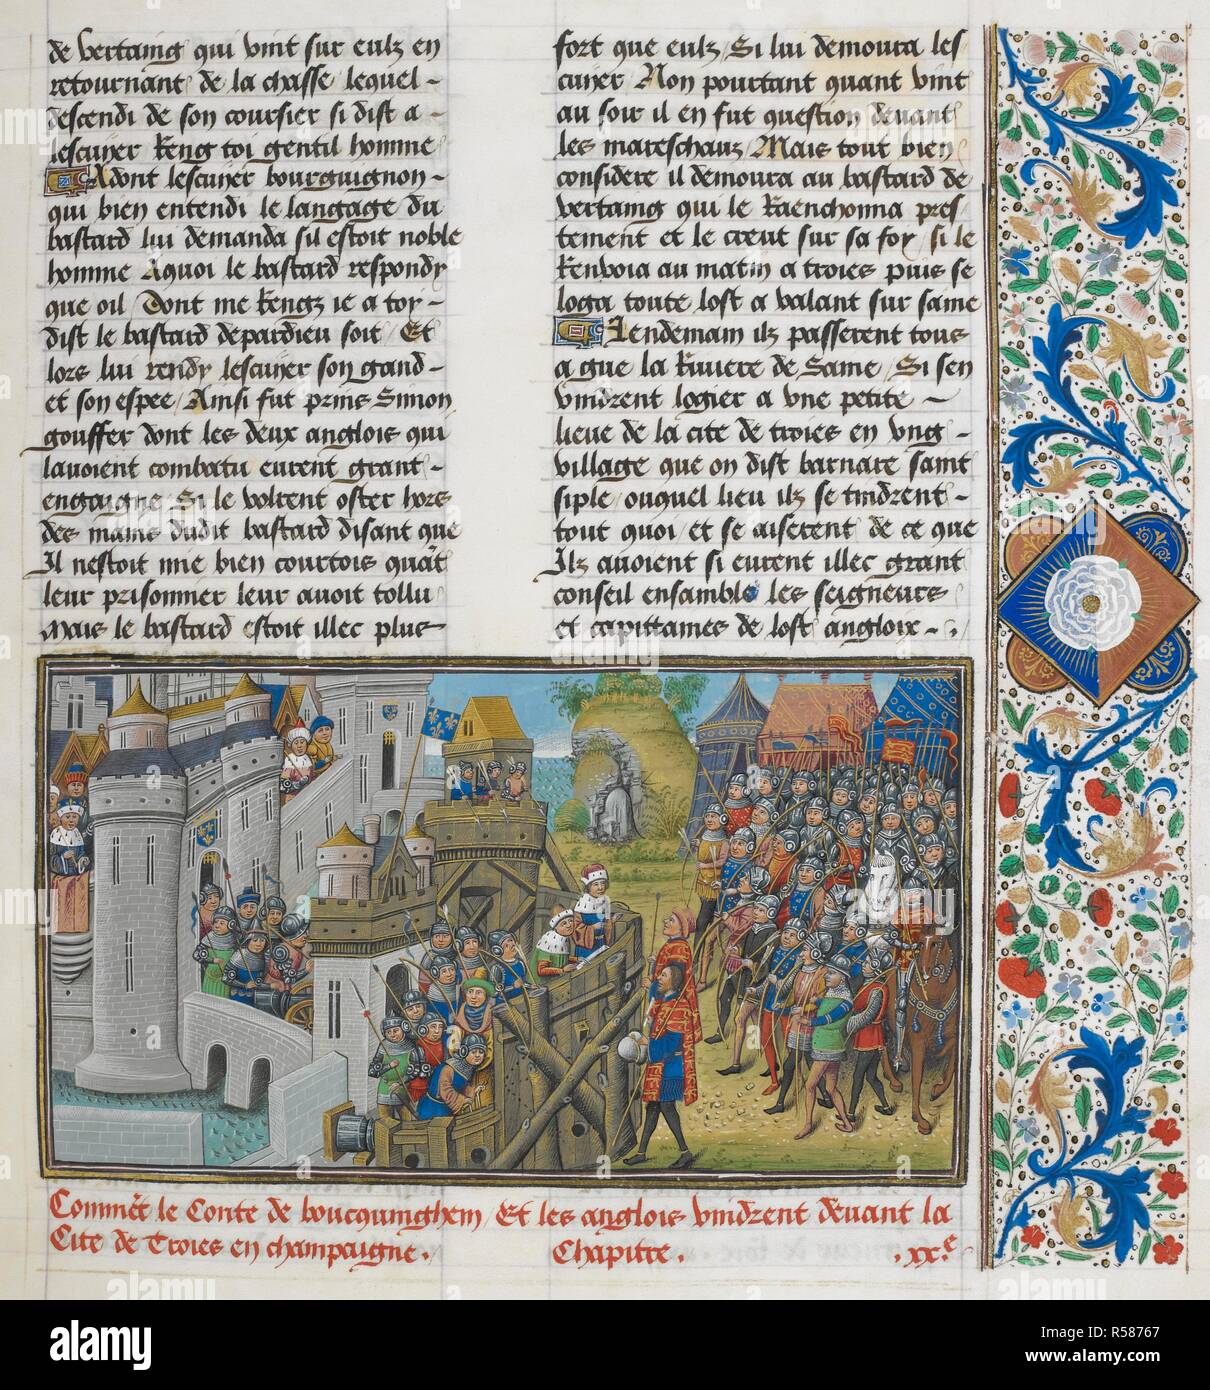 de vertaing qui vint sur eulz en
retournant de la chasse lequel
descendi de son coursier si dist a
lescuier Reng toi gentil homme
Adont lescuier bourguignon
qui bien entendi le langage du
bastard lui demanda sil estoit noble
homme Aquoi le bastard respondy
que oil / Dont me Rengz ie a toy
dist le bastard depardieu soit / Et
lors lui rendy lescuier son gand
et son espee / Ainsi fut prins Simon
gouffer dont les deux anglois qui
lauoient combatu eurent grant
engaigne / Si le voltrent oster hors
des mains dudit bastard disant que
Il nestoit mie bien courtois quãt
leur prisonnier leur auoit tollu
Mais le bastard estoit illec plus
fort que eulz / Si lui demoura les
cuier / Non pourtant quant vint
au soir il en fut question deuant
les mareschaux / Mais tout bien
considere il demoura au bastard de
vertaing qui le Raenchonna pres
tement et le creut sur sa foy / si le
Renuoia au matin a troies puis se
loga toute lost a valant sur saine
Lendemain ilz passerent tous
a gue la Riuiere de Saine / Si sen
vindrent logier a vne petite
lieue de la cite de troies en vng
village que on dist barnare saint
siple / ouquel lieu ilz se tindrent
tout quoi / et se aiserent de ce que
Ilz auoient si eurent illec grant
conseil ensamble les seigneurs
et capittaines de lost anglois
Commẽt le Conte de boucquinghem / Et les anglois vindrent deuant la
Cite de Troies en champaigne. Chapitre. .xx.e
alamy
Image ID: R58767
www.alamy.com